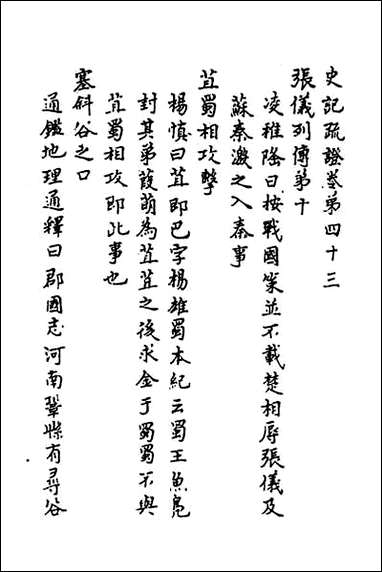 史記疏證卷第四十三
張儀列傳第十
凌稚隆曰按戰國策並不載楚相辱張儀及
蘇秦激之入秦事
苴蜀相攻擊
楊慎曰苴即巴字楊雄蜀本紀云蜀王魚鳧
封其弟葭萌為苴苴之後求金于蜀蜀不與
苴蜀相攻即此事也
塞斜谷之口
通鑑地理通釋曰郡國志河南鞏縣有尋谷